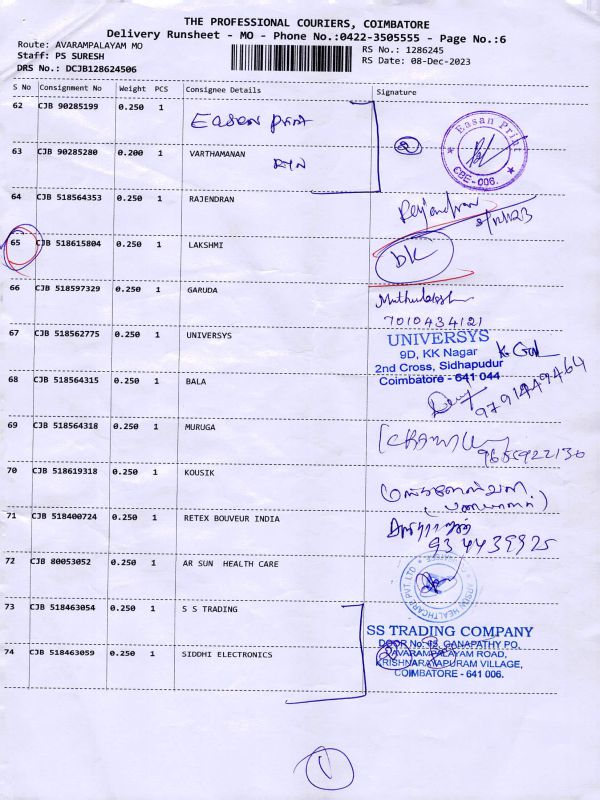 THE PROFESSIONAL COURIERS, COIMBATORE
Delivery Runsheet - MO - Phone No.:0422-3505555 - Page No.:6
Route: AVARAMPALAYAM MO
RS No.: 1286245
Staff: PS SURESH
RS Date: 08-Dec-2023
DRS No.: DCJB128624506
S No Consignment No Weight PCS Consignee Details Signature
62 CJB 90285199 0.250 1 Eason print
Easan Print
CBE-006.
63 CJB 90285280 0.200 1 VARTHAMANAN
64 CJB 518564353 0.250 1 RAJENDRAN Rajendran
65 CJB 518615804 0.250 1 LAKSHMI
66 CJB 518597329 0.250 1 GARUDA
7010434121
67 CJB 518562775 0.250 1 UNIVERSYS
UNIVERSYS
9D, KK Nagar
2nd Cross, Sidhapudur
Coimbatore - 641 044
68 CJB 518564315 0.250 1 BALA
9791449464
69 CJB 518564318 0.250 1 MURUGA
9655922130
70 CJB 518619318 0.250 1 KOUSIK
71 CJB 518400724 0.250 1 RETEX BOUVEUR INDIA
72 CJB 80053052 0.250 1 AR SUN HEALTH CARE
HEALTHCARE PVT LTD
73 CJB 518463054 0.250 1 S S TRADING
SS TRADING COMPANY
74 CJB 518463059 0.250 1 SIDDHI ELECTRONICS
GANAPATHY PO,
AVARAMPALAYAM ROAD,
KRISHNARAYAPURAM VILLAGE,
COIMBATORE - 641 006.
1